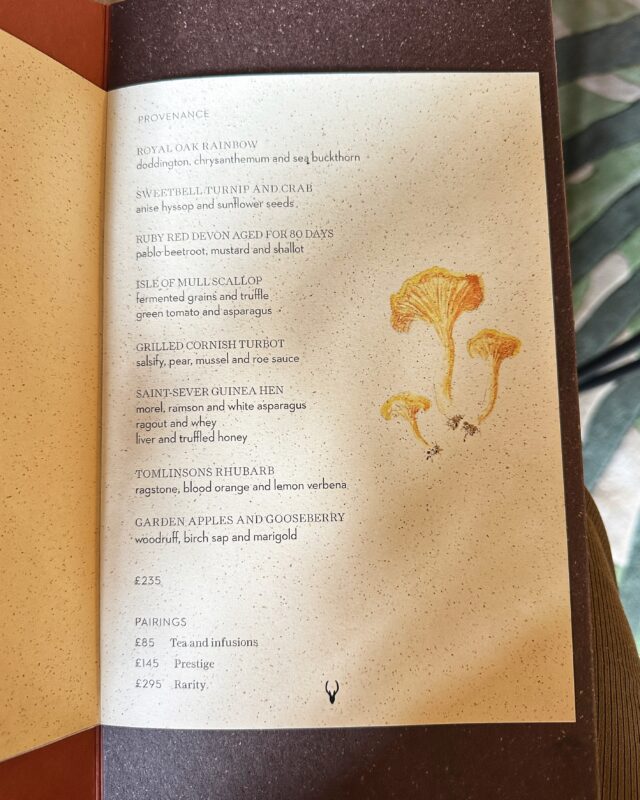 PROVENANCE
ROYAL OAK RAINBOW
doddington, chrysanthemum and sea buckthorn
SWEETBELL TURNIP AND CRAB
anise hyssop and sunflower seeds
RUBY RED DEVON AGED FOR 80 DAYS
pablo beetroot, mustard and shallot
ISLE OF MULL SCALLOP
fermented grains and truffle
green tomato and asparagus
GRILLED CORNISH TURBOT
salsify, pear, mussel and roe sauce
SAINT-SEVER GUINEA HEN
morel, ramson and white asparagus
ragout and whey
liver and truffled honey
TOMLINSONS RHUBARB
ragstone, blood orange and lemon verbena
GARDEN APPLES AND GOOSEBERRY
woodruff, birch sap and marigold
£235
PAIRINGS
£85 Tea and infusions
£145 Prestige
£295 Rarity